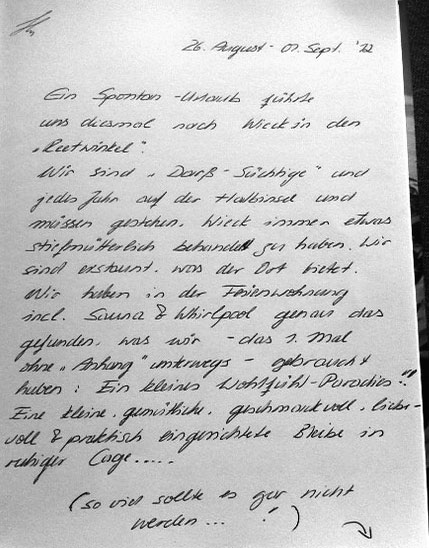 26. August - 01. Sept. '22
Ein Spontan-Urlaub führte
uns diesmal nach Wieck in den
„Reetwinkel".
Wir sind „Darß-Süchtige" und
jedes Jahr auf der Halbinsel und
müssen gestehen, Wieck immer etwas
stiefmütterlich behandelt zu haben. Wir
sind erstaunt, was der Ort bietet.
Wir haben in der Ferienwohnung
incl. Sauna & Whirlpool genau das
gefunden, was wir - das 1. Mal
ohne „Anhang" unterwegs - gebraucht
haben: Ein kleines Wohlfühl-Paradies!
Eine kleine, gemütliche, geschmackvoll, liebe-
voll & praktisch eingerichtete Bleibe in
ruhiger Lage.....
(so viel sollte es gar nicht
werden... !)